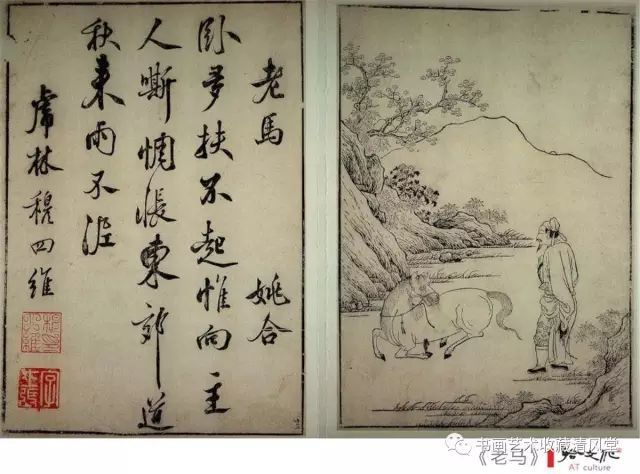 老馬 姚合
卧多扶不起惟向主
人嘶惆悵東郊道
秋來雨不泥
虎林穆四維
书画艺术收藏清风堂
《老马》
AT culture